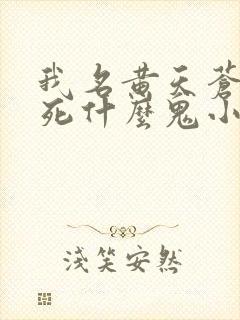 我名黄天蒼
死什麼鬼小
淺笑安然